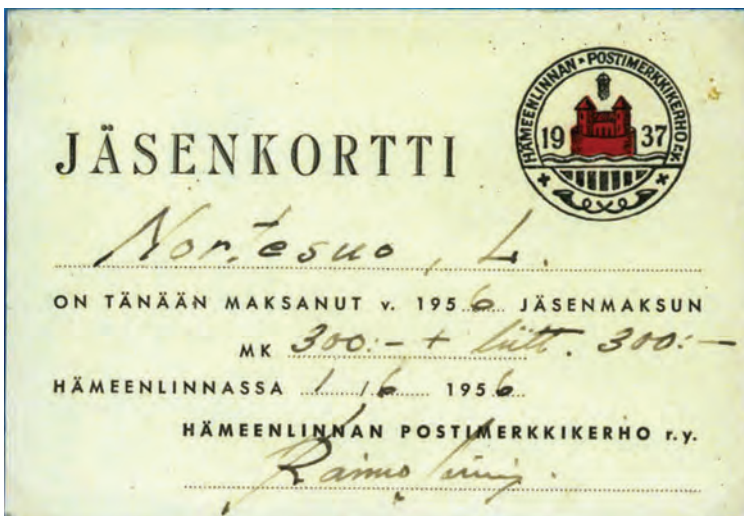 HÄMEENLINNAN • POSTIMERKKIKERHO r.y.
19 37
JÄSENKORTTI
Nortesuo, L.
ON TÄNÄÄN MAKSANUT v. 1956 JÄSENMAKSUN
MK 300:- + liitt. 300:-
HÄMEENLINNASSA 1/6 1956
HÄMEENLINNAN POSTIMERKKIKERHO r.y.
Raimo